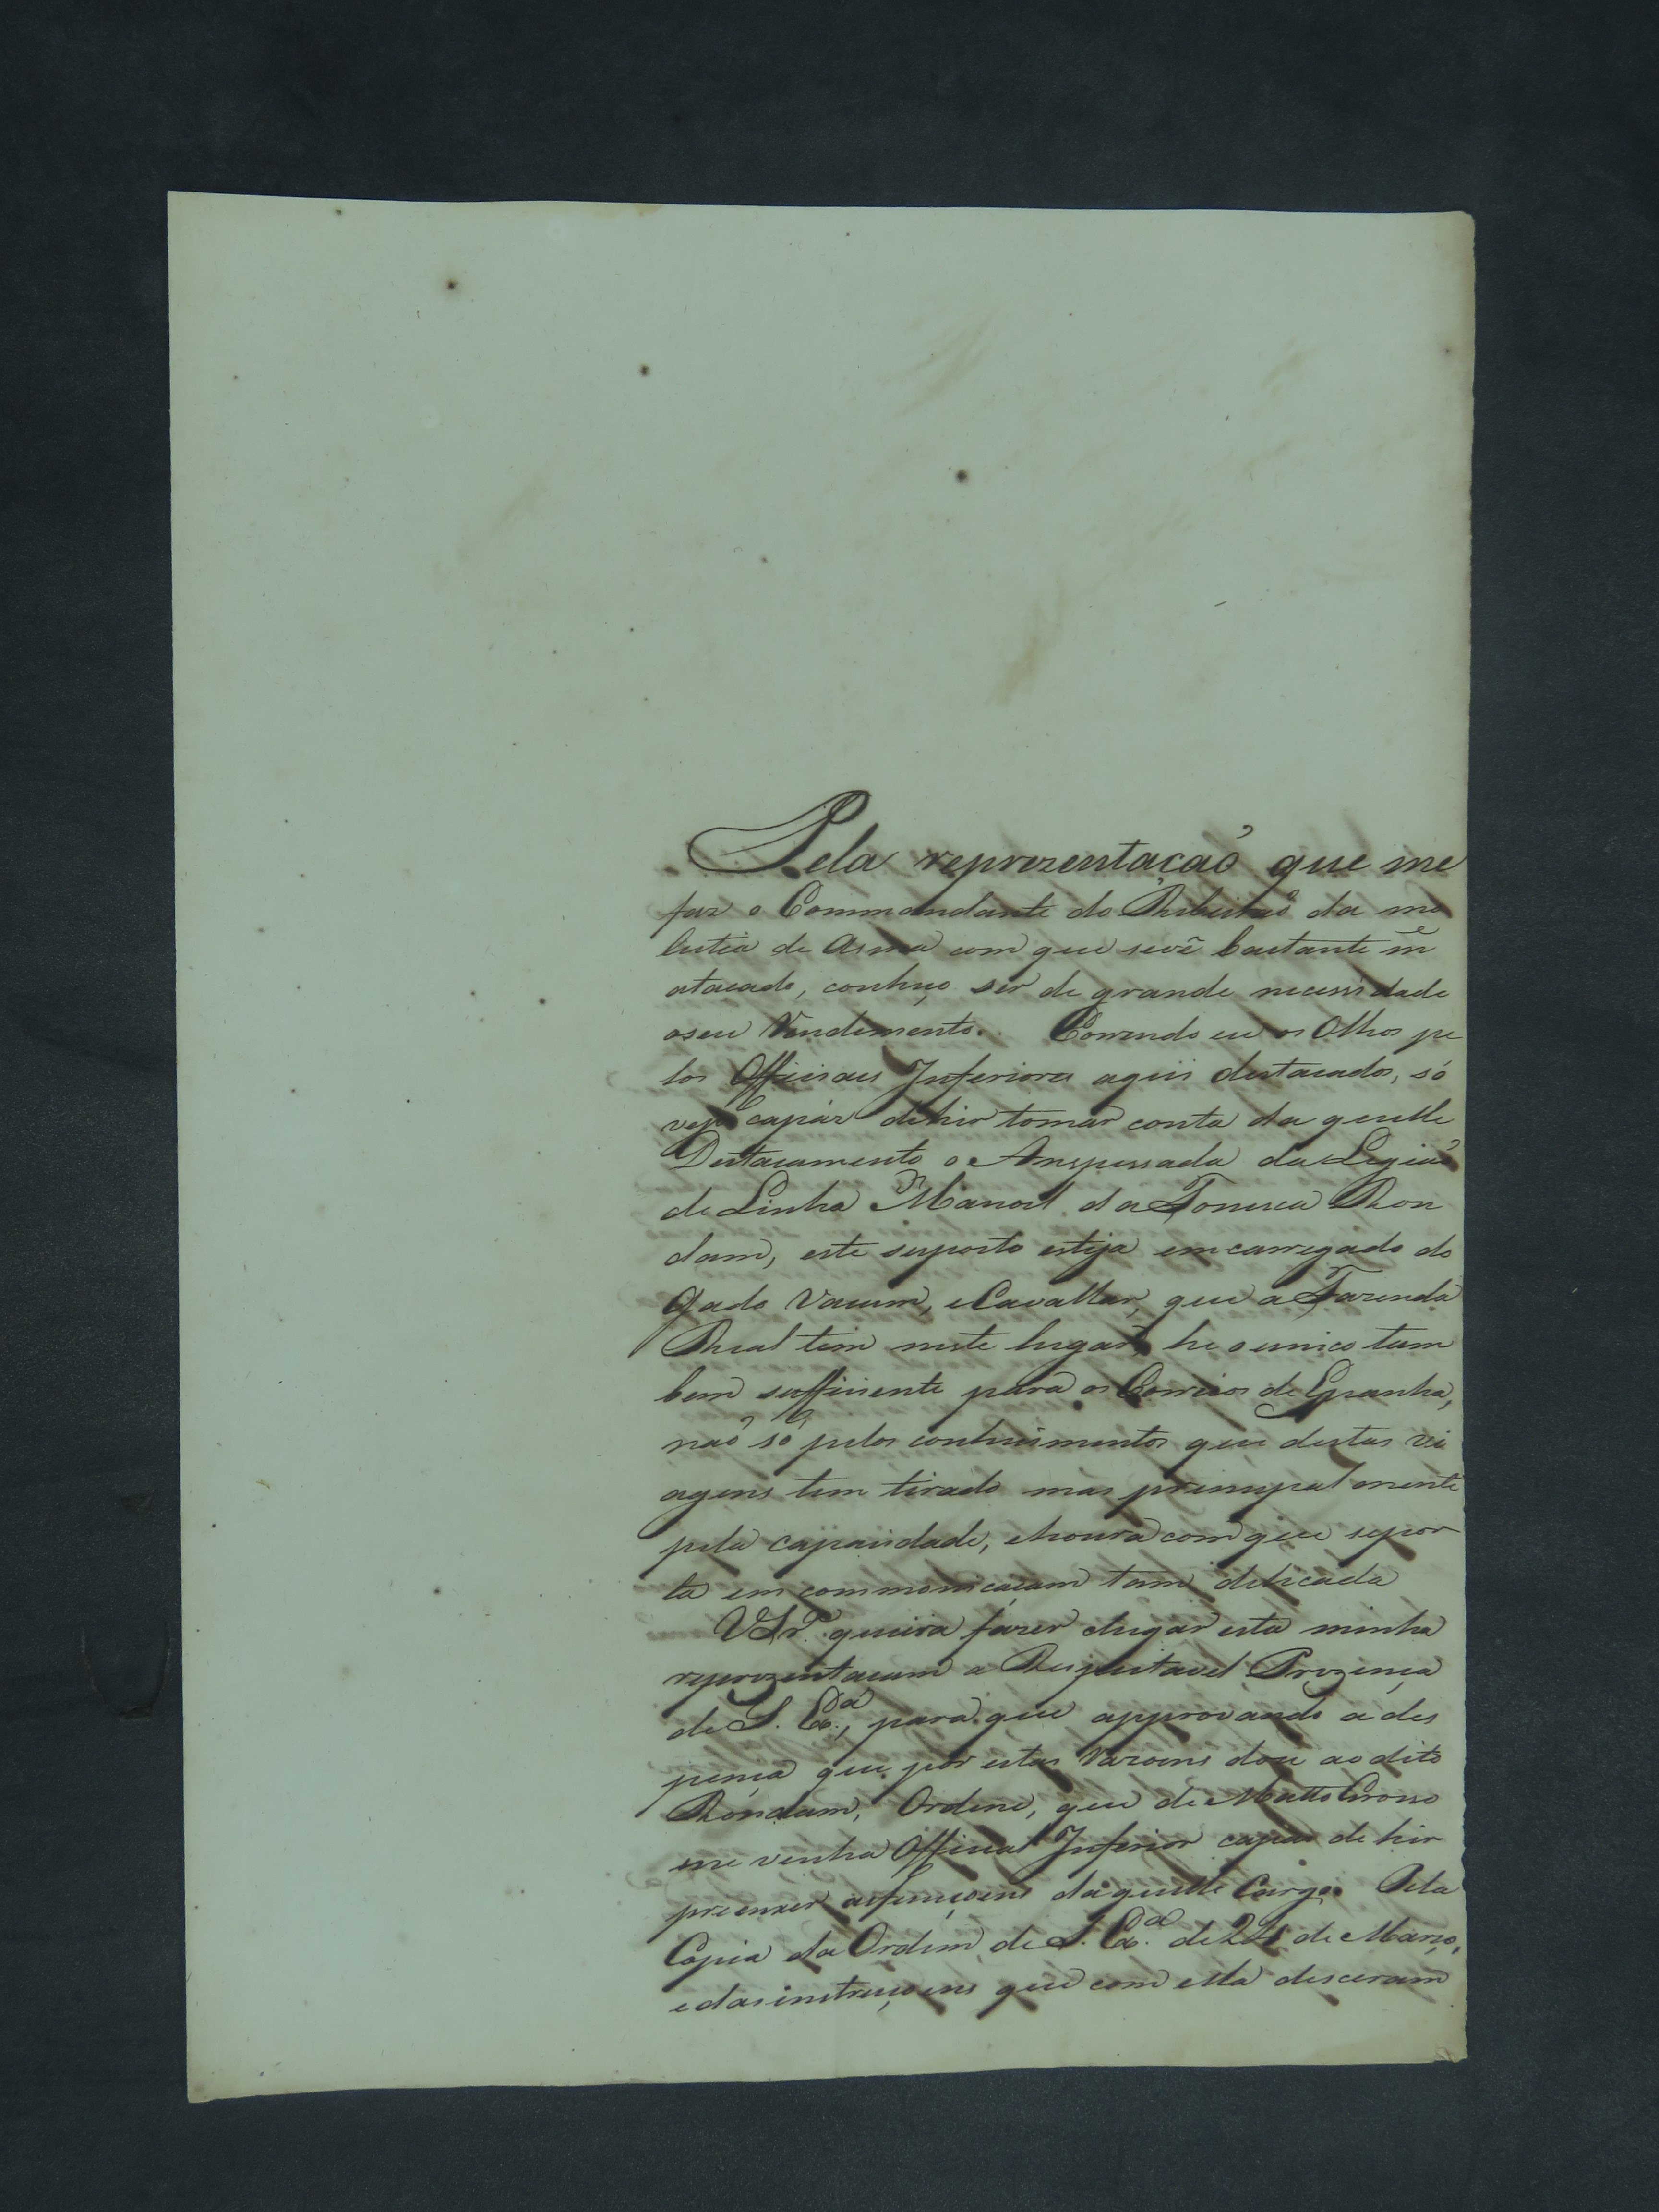 Pela reprezentaçaõ que me
faz o Commandante do Ribeiraõ da mo
lestia de Asma com que sevê bastante m.e
atacado, conheço ser de grande necessidade
oseu Rendemento. Correndo eu os Olhos pe
los Officiaes Inferiores aquii destacados, só
vejo capáz dehir tomar conta da quelle
Destacamento o Anspessada da Legiaõ
de Linha Manoel da Fonseca Ron
dam, este suposto esteja emcarregado do
Gado Vacum, eCavallar, que a Fazenda
Real tem neste lugar, he o unico tam
bem sufficiente para os Correios de Espanha,
naõ só pelos conhecimentos que destas vi
agens tem tirado mas principal mente
pela capacidade, ehonra com que sepor
ta em commonicaçam tam delicada
VSr.ª queira fazer chegar esta minha
reprezentacam a Respeitavel Prezença
de S. Ex.ª, para que approvando a des
pença que por estas Razoens dou ao dito
Rondam, Ordene, que de Matto Grosso
me venha Official Inferior capaz de hir
preenxer asfunçoens daquelle Cargo. Pela
Copia da Ordem de S. Ex.ª de 24 de Março,
e das instruçoens que com ella desceram